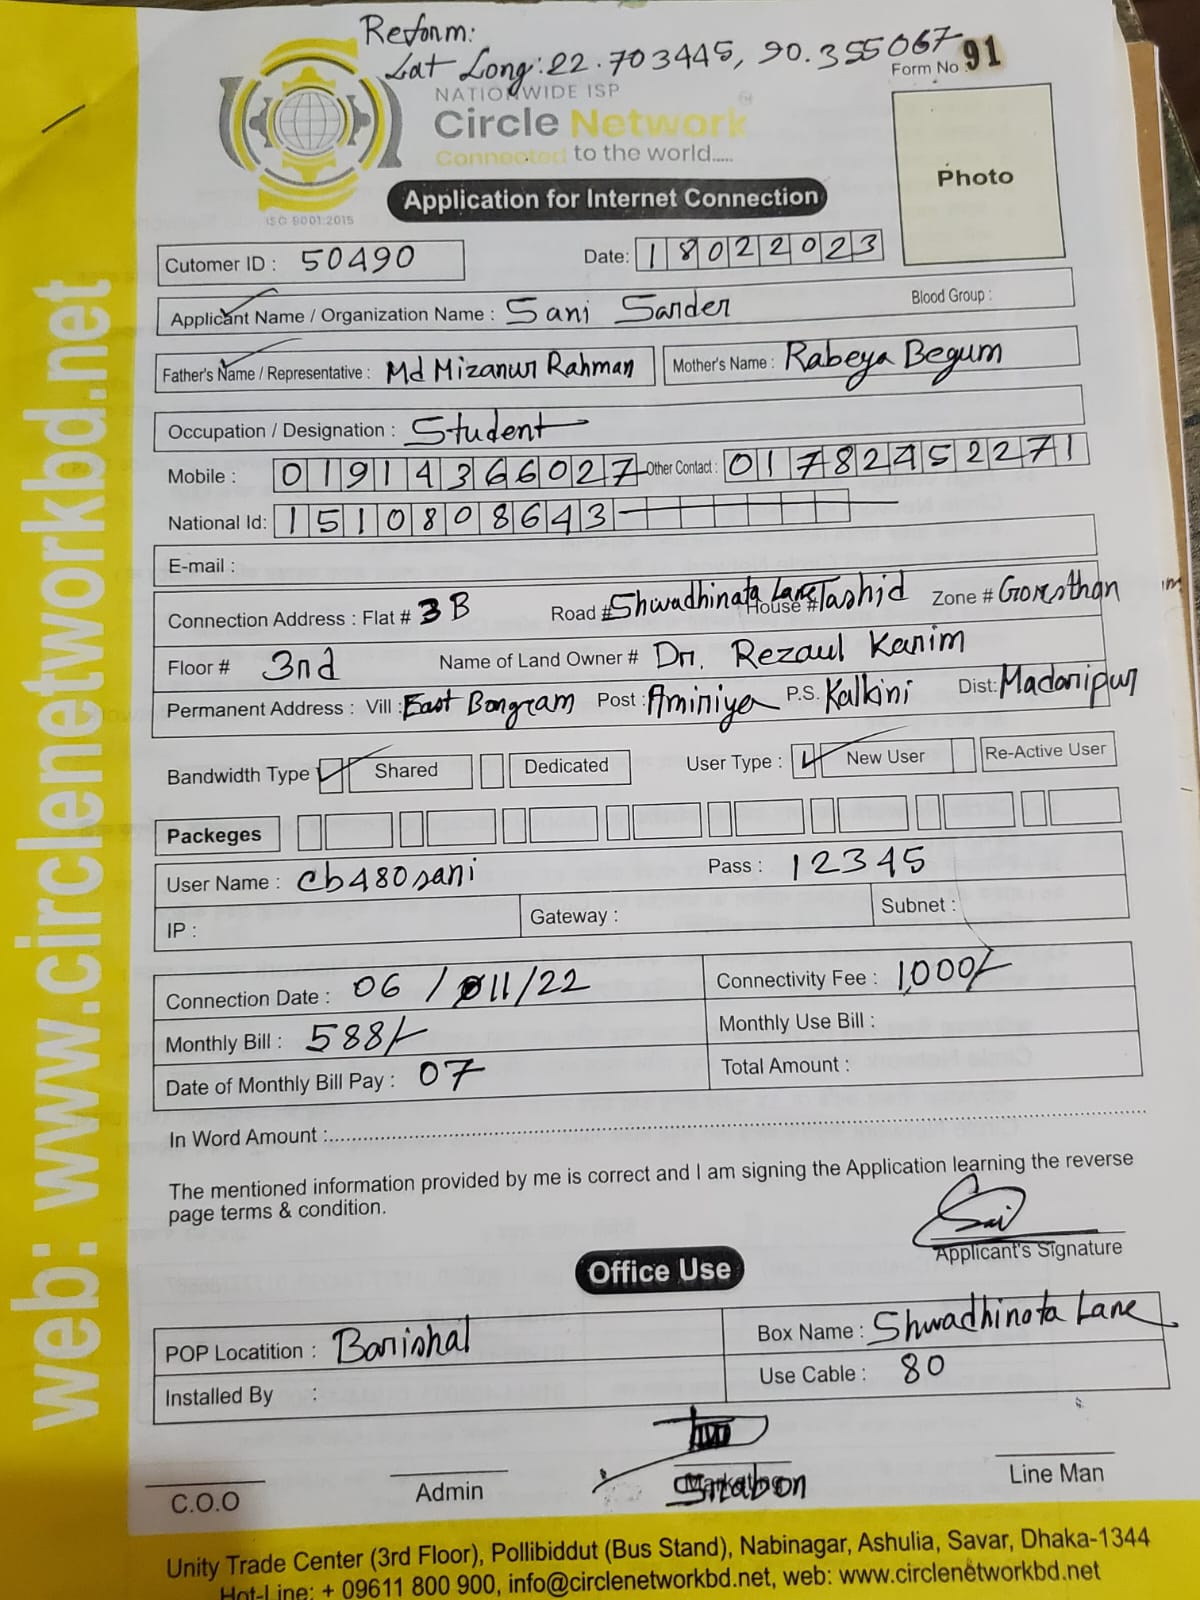 Reform:
Lat Long: 22.703445, 90.355067
Form No : 91
NATIONWIDE ISP
Circle Network
Connected to the world.....
ISO 9001:2015
Application for Internet Connection
Photo
Cutomer ID : 50490
Date: 18022023
Applicant Name / Organization Name : Sani Sarder
Blood Group :
Father's Name / Representative : Md Mizanur Rahman
Mother's Name : Rabeya Begum
Occupation / Designation : Student
Mobile : 01914366027 Other Contact : 01782452271
National Id: 1510808643
E-mail :
Connection Address : Flat # 3B Road # Shwadhinata Lane House # Tashid Zone # Gorosthan
Floor # 3nd Name of Land Owner # Dr. Rezaul Karim
Permanent Address : Vill : East Bongram Post : Aminiya P.S. Kalkini Dist: Madaripur
Bandwidth Type Shared Dedicated User Type : New User Re-Active User
Packeges
User Name : cb480sani Pass : 12345
IP : Gateway : Subnet :
Connection Date : 06 / 11/22 Connectivity Fee : 1,000/-
Monthly Bill : 588/- Monthly Use Bill :
Date of Monthly Bill Pay : 07 Total Amount :
In Word Amount :
The mentioned information provided by me is correct and I am signing the Application learning the reverse
page terms & condition.
Applicant's Signature
Office Use
POP Locatition : Barishal Box Name : Shwadhinota Lane
Installed By : Use Cable : 80
C.O.O Admin Marketing Line Man
web: www.circlenetworkbd.net
Unity Trade Center (3rd Floor), Pollibiddut (Bus Stand), Nabinagar, Ashulia, Savar, Dhaka-1344
Hot-Line: + 09611 800 900, info@circlenetworkbd.net, web: www.circlenetworkbd.net